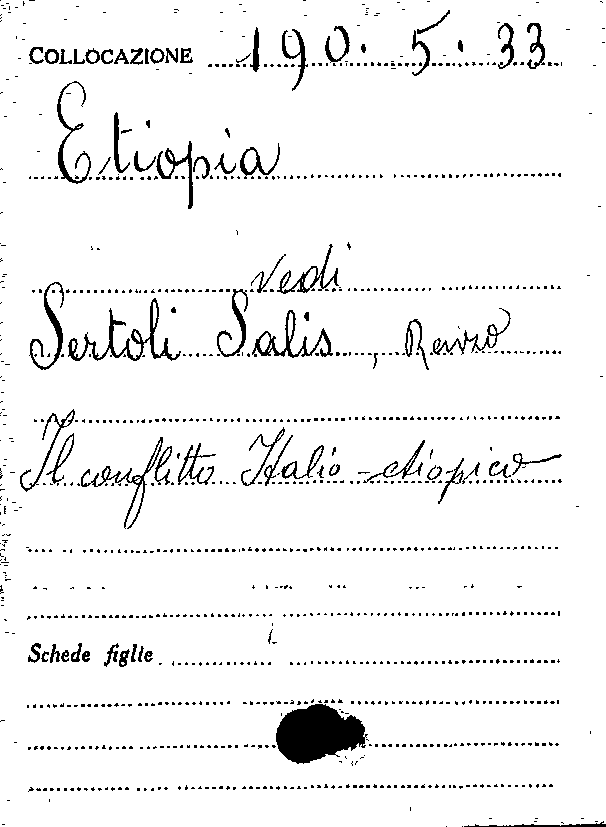 COLLOCAZIONE 190. 5. 33
Etiopia
vedi
Sertoli Salis, Renzo
Il conflitto Italio-etiopico
Schede figlie